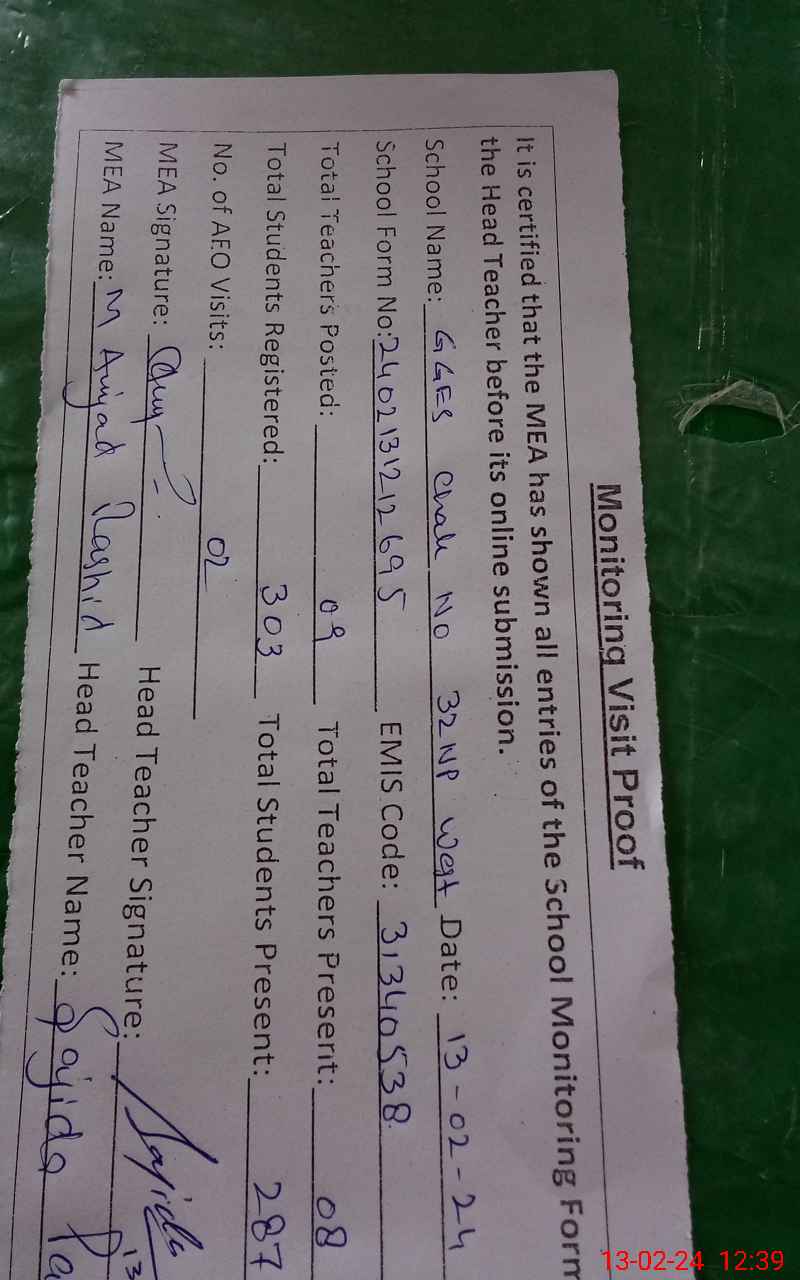 Monitoring Visit Proof
It is certified that the MEA has shown all entries of the School Monitoring Form
the Head Teacher before its online submission.
School Name: GGES Chak No 32NP West Date: 13-02-24
School Form No: 2402131212695 EMIS Code: 31340538
Total Teachers Posted: 09 Total Teachers Present: 08
Total Students Registered: 303 Total Students Present: 287
No. of AEO Visits: 02
MEA Signature: Head Teacher Signature: Sajida
13
MEA Name: M Amjad Rashid Head Teacher Name: Sajida Pa
13-02-24 12:39